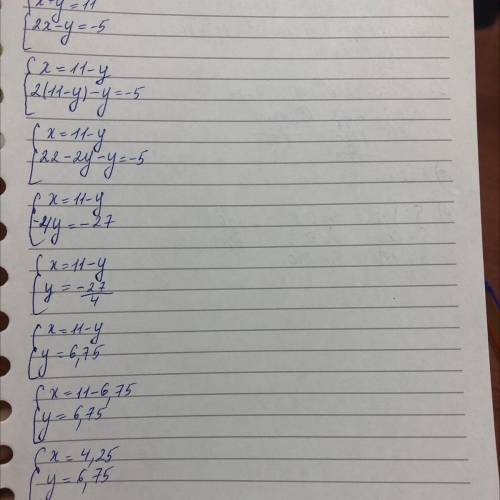 x+y=11
2x-y=-5
x=11-y
2(11-y)-y=-5
x=11-y
22-2y-y=-5
x=11-y
-4y=-27
x=11-y
y=-27/4
x=11-y
y=6,75
x=11-6,75
y=6,75
x=4,25
y=6,75